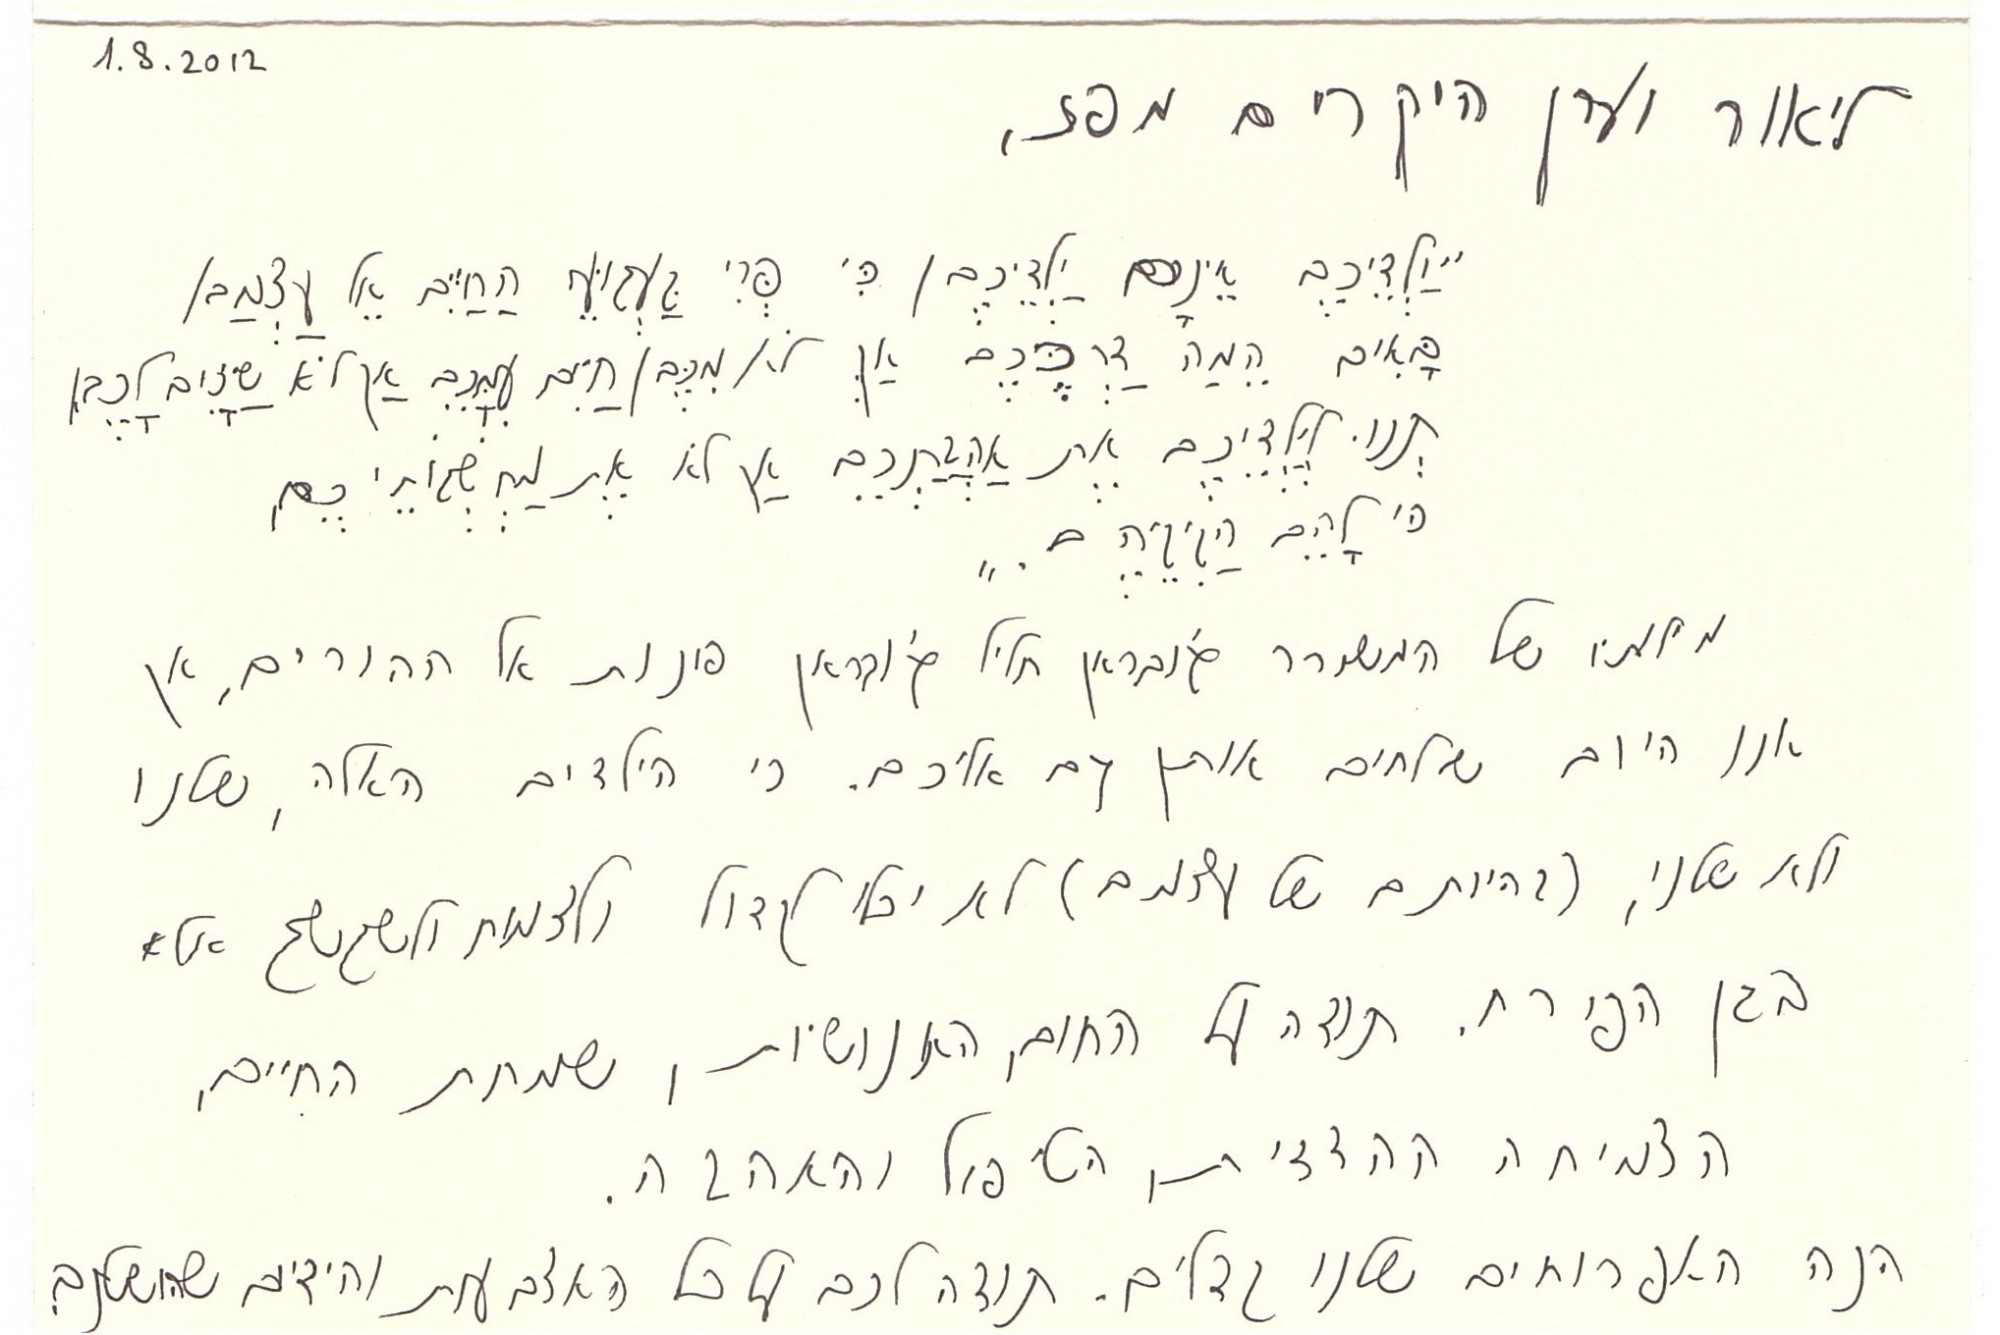 1.8.2012
ליאור וערן היקרים מפז,
"יַלְדֵיכֶם אֵינָם יַלְדֵיכֶם/ כִּי פְּרִי גַּעְגּוּעֵי הַחַיִּים אֶל עַצְמַם/
בָּאִים הֵמַה דַרְכֵּכֶם אַךְ לֹא מִכֶּם/ חַיִּים עִמָּכֶם אַךְ לֹא שַׁיָּכִים לָכֶם,
תְנוּ לְיַלְדֵיכֶם אֶת אַהֲבַתְכֶם אַךְ לֹא אֶת מַחְשְׁבוֹתֵיכֶם,
כי לָהֶם הַגִיגֵיהֶם."
מילותיו של המשורר ג'ובראן חליל ג'ובראן פונות אל ההורים, אך
אנו היום שולחים אותן גם אליכם. כי הילדים האלה, שלנו
ולא שלנו, (בהיותם של עצמם) לא יכלו לגדול ולצמוח ולשגשג אלא
בגן הפורח. תודה על החום, האנושיות, שמחת החיים,
הצמיחה ההדדית, הטיפול והאהבה.
הנה האפרוחים שלנו גדלים. תודה לכם על כל האצבעות והידיים שהושטתם